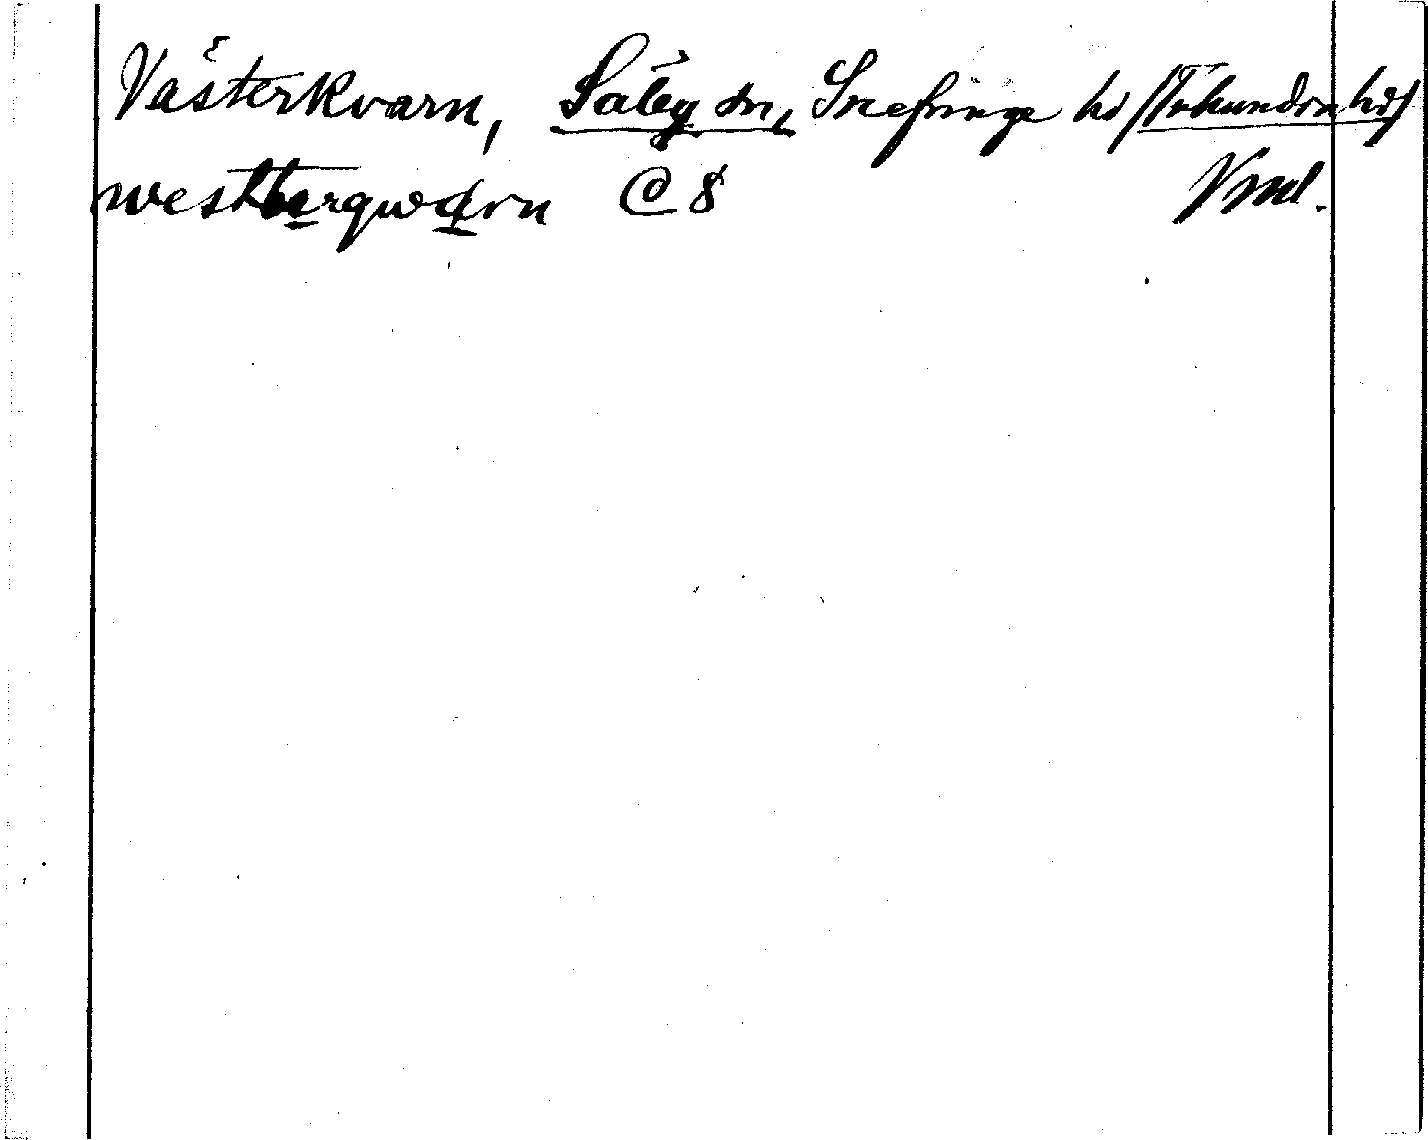 Västerkvarn, Säby sn, Snefringe hd /Tuhundra hd/
westberqwꜵrn C 8 Vml.